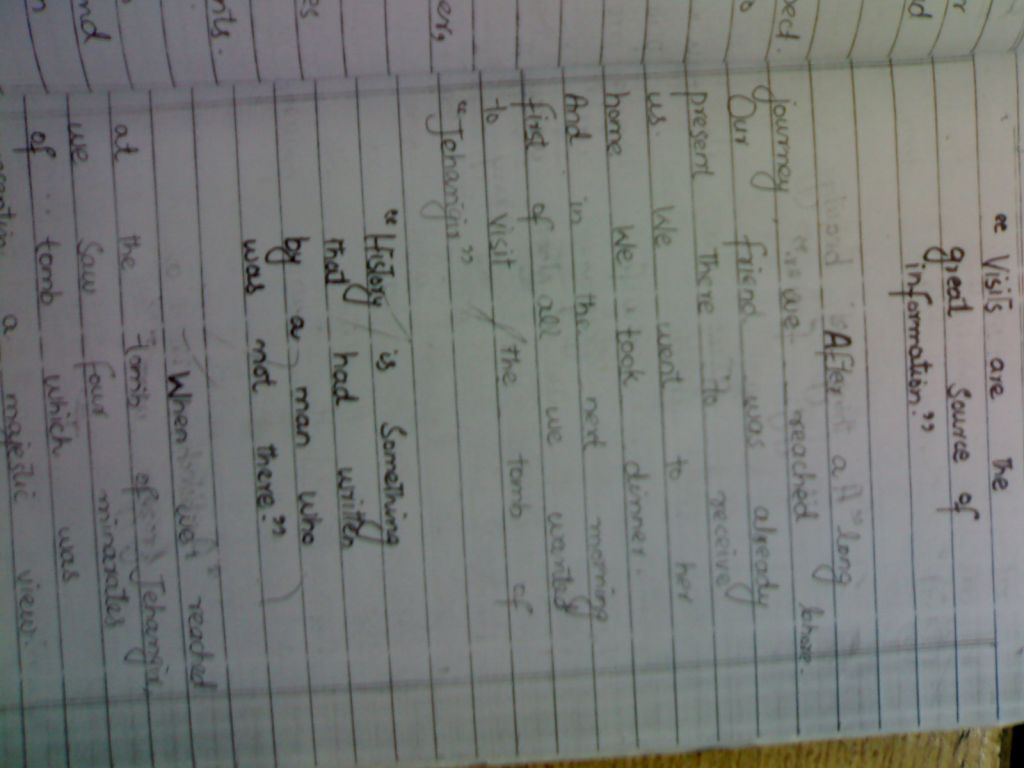 “ Visits are the
great source of
information.”
After a long
journey, we reached lahore.
Our friend was already
present there to receive
us. We went to her
home We took dinner.
And in the next morning
first of all we wanted
to visit the tomb of
“Jehangir”
“History is Something
that had written
by a man who
was not there.”
When we reached
at the tomb of Jehangir,
we Saw four minarates
of tomb which was
a majestic view